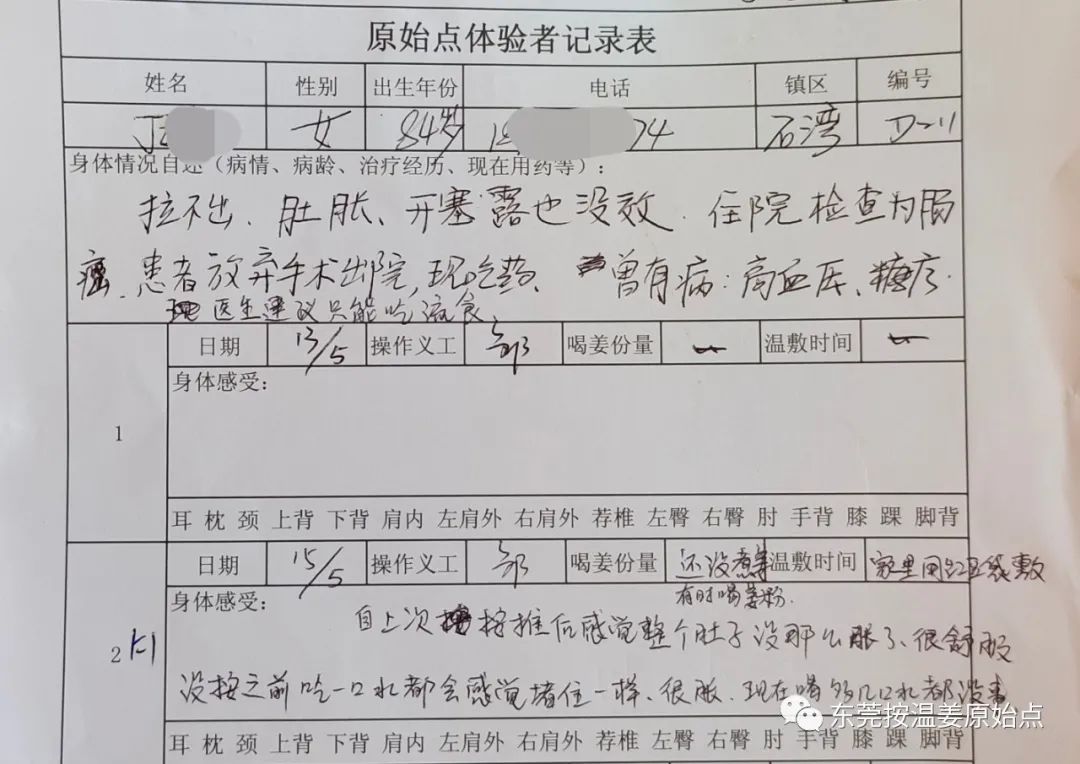 原始点体验者记录表
姓名 性别 出生年份 电话 镇区 编号
女 84岁 18 74 石湾 D-11
身体情况自述（病情、病龄、治疗经历、现在用药等）：
拉不出、肚胀、开塞露也没效、住院检查为肠
癌、患者放弃手术出院，现吃药、曾有病：高血压、糖尿
医生建议只能吃流食
日期 13/5 操作义工 喝姜份量 一 温敷时间 一
1
身体感受：
耳 枕 颈 上背 下背 肩内 左肩外 右肩外 荐椎 左臀 右臀 肘 手背 膝 踝 脚背
日期 15/5 操作义工 喝姜份量 还没煮姜 温敷时间 家里用红豆袋敷
有时喝姜粉.
2
身体感受：
自上次按推后感觉整个肚子没那么胀了、很舒服
没按之前吃一口水都会感觉堵住一样、很胀、现在喝多几口水都没事
耳 枕 颈 上背 下背 肩内 左肩外 右肩外 荐椎 左臀 右臀 肘 手背 膝 踝 脚背
东莞按温姜原始点